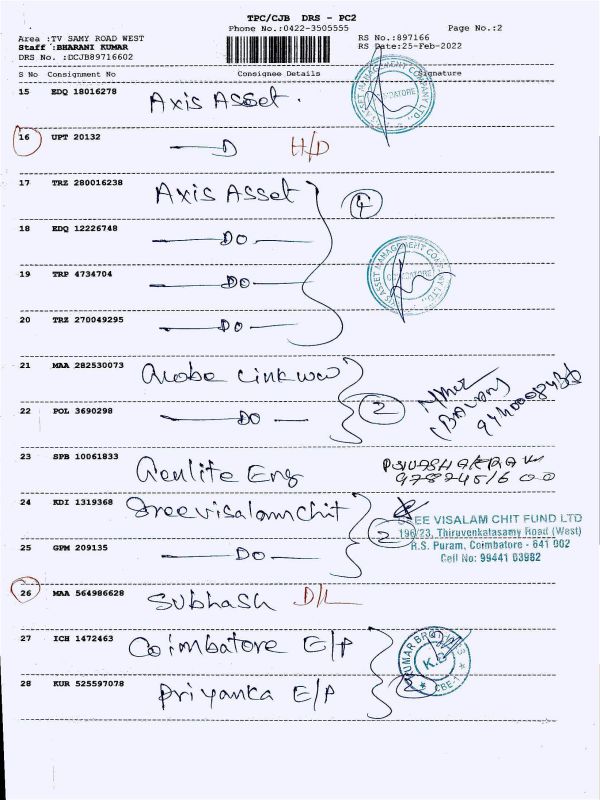 TPC/CJB DRS - PC2
Phone No.:0422-3505555 Page No.:2
Area :TV SAMY ROAD WEST RS No.:897166
Staff :BHARANI KUMAR RS Date:25-Feb-2022
DRS No. :DCJB89716602
S No Consignment No Consignee Details Signature
15 EDQ 18016278 Axis Asset.
16 UPT 20132 D H/D
17 TRZ 280016238 Axis Asset 4
18 EDQ 12226748 DO
19 TRP 4734704 DO
20 TRZ 270049295 DO
21 MAA 282530073
22 POL 3690298 DO 2
23 SPB 10061833 Eng
24 KDI 1319368 Sreevisalam chit
SREE VISALAM CHIT FUND LTD
196/23, Thiruvenkatasamy Road (West)
25 GPM 209135 DO 2
R.S. Puram, Coimbatore - 641 002
Cell No: 99441 03982
26 MAA 564986628 Subhash D/L
27 ICH 1472463 Coimbatore E/P
28 KUR 525597078 Priyanka E/P 2